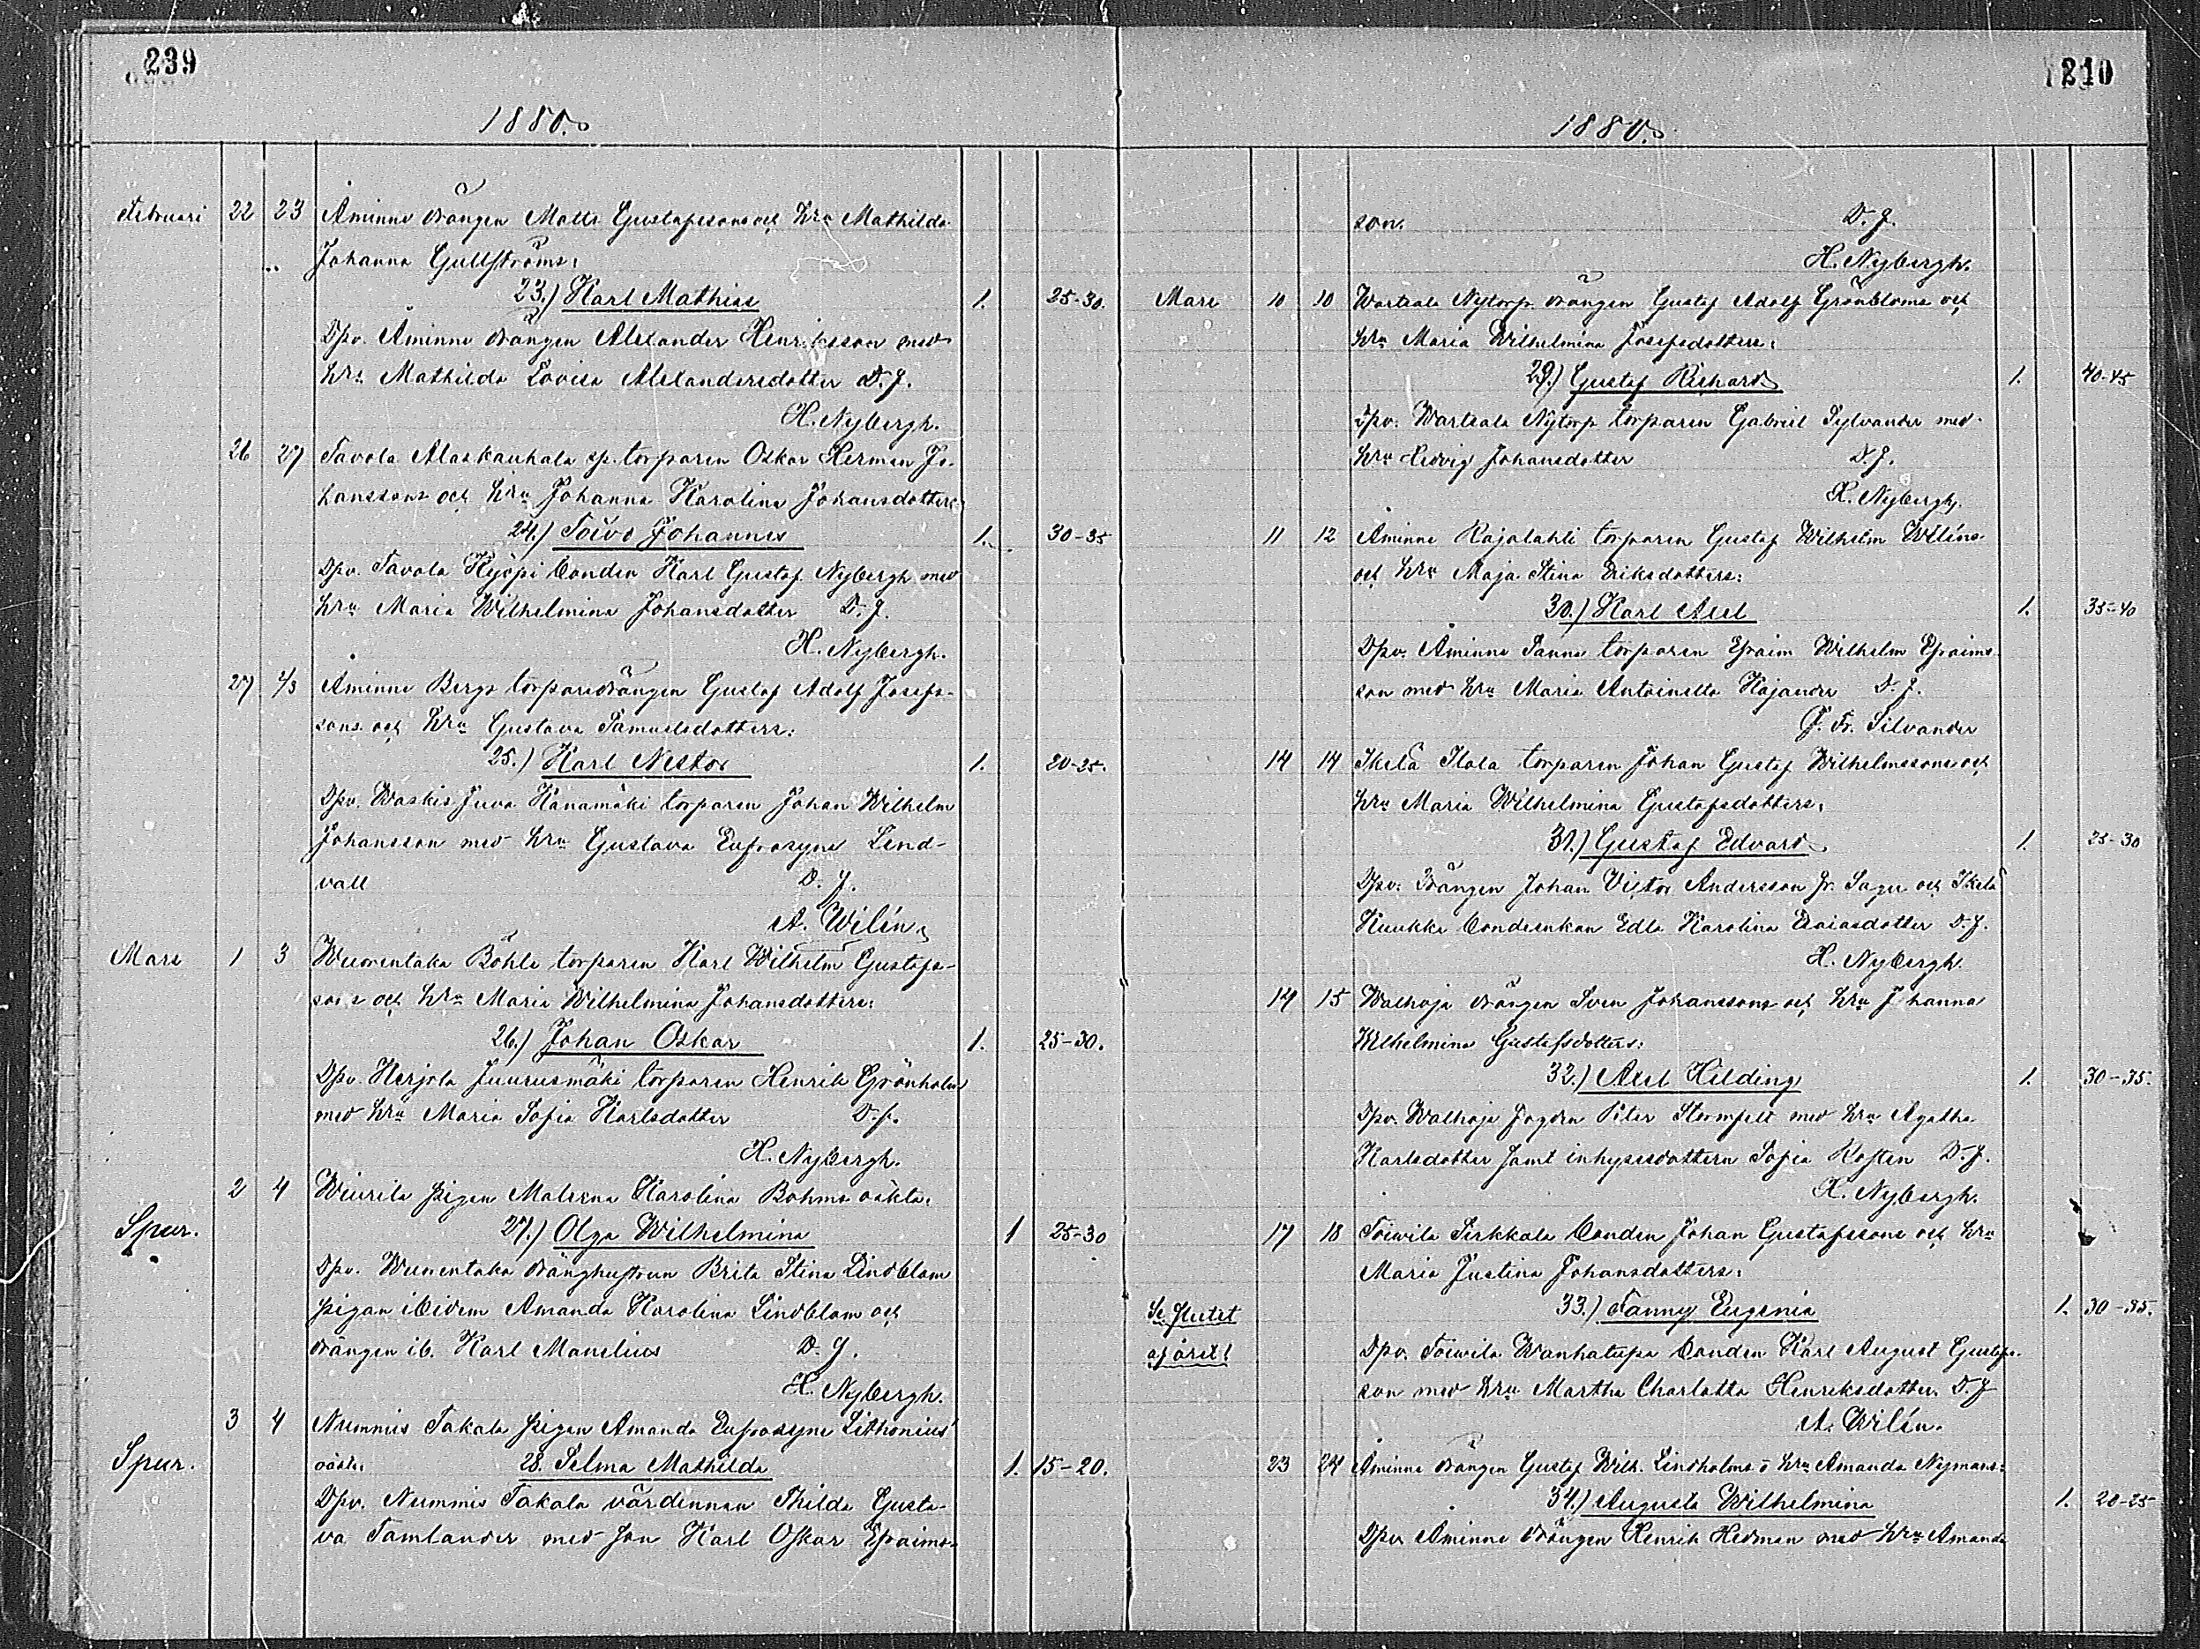 239
1880.
Februari 22 23 Åminne drängen Matts Gustafssons och hru Mathilda
Johanna Gullströms:
23.) Karl Mathias 1. 25-30.
Dpv. Åminne drängen Alexander Henriksson med
hru Mathilda Lovisa Alexandersdotter D. J.
H. Nybergh.
26 27 Tavola Alaskauhala sp. torparen Oskar Herman Jo-
hanssons och hru Johanna Karolina Johansdotters:
24.) Toivo Johannes 1. 30-35
Dpv. Tavola Kyöpi bonden Karl Gustaf Nybergh med
hru Maria Wilhelmina Johansdotter D. J.
H. Nybergh.
27 1/3 Åminne Bergs torparedrängen Gustaf Adolf Josefs-
sons och hru Gustava Samuelsdotters:
25.) Karl Nestor 1. 20-25.
Dpv. Waskis Juva Hanamäki torparen Johan Wilhelm
Johansson med hru Gustava Eufrosyne Lind-
vall D. J.
A. Wilén.
Mars 1 3 Wuorentaka Böhle torparen Karl Wilhelm Gustafs-
sons och hru Maria Wilhelmina Johansdotters:
26.) Johan Oskar 1. 25-30.
Dpv. Kerjola Juurusmäki torparen Henrik Grönholm
med hru Maria Sofia Karlsdotter D. J.
H. Nybergh.
2 4 Wiurila pigan Malena Karolina Bohms oäkta:
Spur. 27.) Olga Wilhelmina 1 25-30
Dpv. Wuorentaka dränghustrun Brita Stina Lindblom
pigan ibidem Amanda Karolina Lindblom och
drängen ib. Karl Manelius D. J.
H. Nybergh.
3 4 Nummis Takala pigan Amanda Eufrosyne Lithonius'
Spur. oäkta: 28. Selma Mathilda 1. 15-20.
Dpv. Nummis Takala värdinnan Thilda Gusta-
va Tamlander med son Karl Oskar Efraims-
210
1880.
son. D. J.
H. Nybergh.
Mars 10 10 Wartsala Nytorp drängen Gustaf Adolf Grönbloms och
hru Maria Wilhelmina Josefsdotters:
29.) Gustaf Richard 1. 40-45
Dpv. Wartsala Nytorp torparen Gabriel Sylvander med
hru Hedvig Johansdotter D. J.
H. Nybergh.
11 12 Åminne Rajalahti torparen Gustaf Wilhelm Wiléns
och hru Maja Stina Eriksdotters:
30.) Karl Axel 1. 35-40
Dpv. Åminne Sanna torparen Efraim Wilhelm Efraims-
son med hru Maria Antoinetta Kajander D. J.
G. Fr. Silvander
14 14 Ikelä Ilola torparen Johan Gustaf Wilhelmssons och
hru Maria Wilhelmina Gustafsdotters:
31.) Gustaf Edvard 1. 25-30
Dpv. Drängen Johan Victor Andersson fr. Sagu och Ikelä
Kuukka bondeenkan Edla Karolina Esaiasdotter D. J.
H. Nybergh.
14 15 Walhoja drängen Sven Johanssons och hru Johanna
Wilhelmina Gustafsdotters:
32.) Axel Hilding 1. 30-35.
Dpv. Walhoja fogden Peter Stormfelt med hru Agatha
Karlsdotter samt inhysesdottern Sofia Rosten D. J.
H. Nybergh.
17 18 Toiwila Sirkkala bonden Johan Gustafssons och hru
Maria Justina Johansdotters:
Se slutet 33.) Fanny Eugenia 1. 30-35.
af året! Dpv. Toiwila Wanhatupa bonden Karl August Gustafs-
son med hru Martha Charlotta Henriksdotter. D. J
A. Wilén.
23 24 Åminne drängen Gustaf Wilh. Lindholms o hru Amanda Nymans:
34.) Augusta Wilhelmina 1. 20-25
Dpv. Åminne drängen Henrik Hedman med hru Amanda